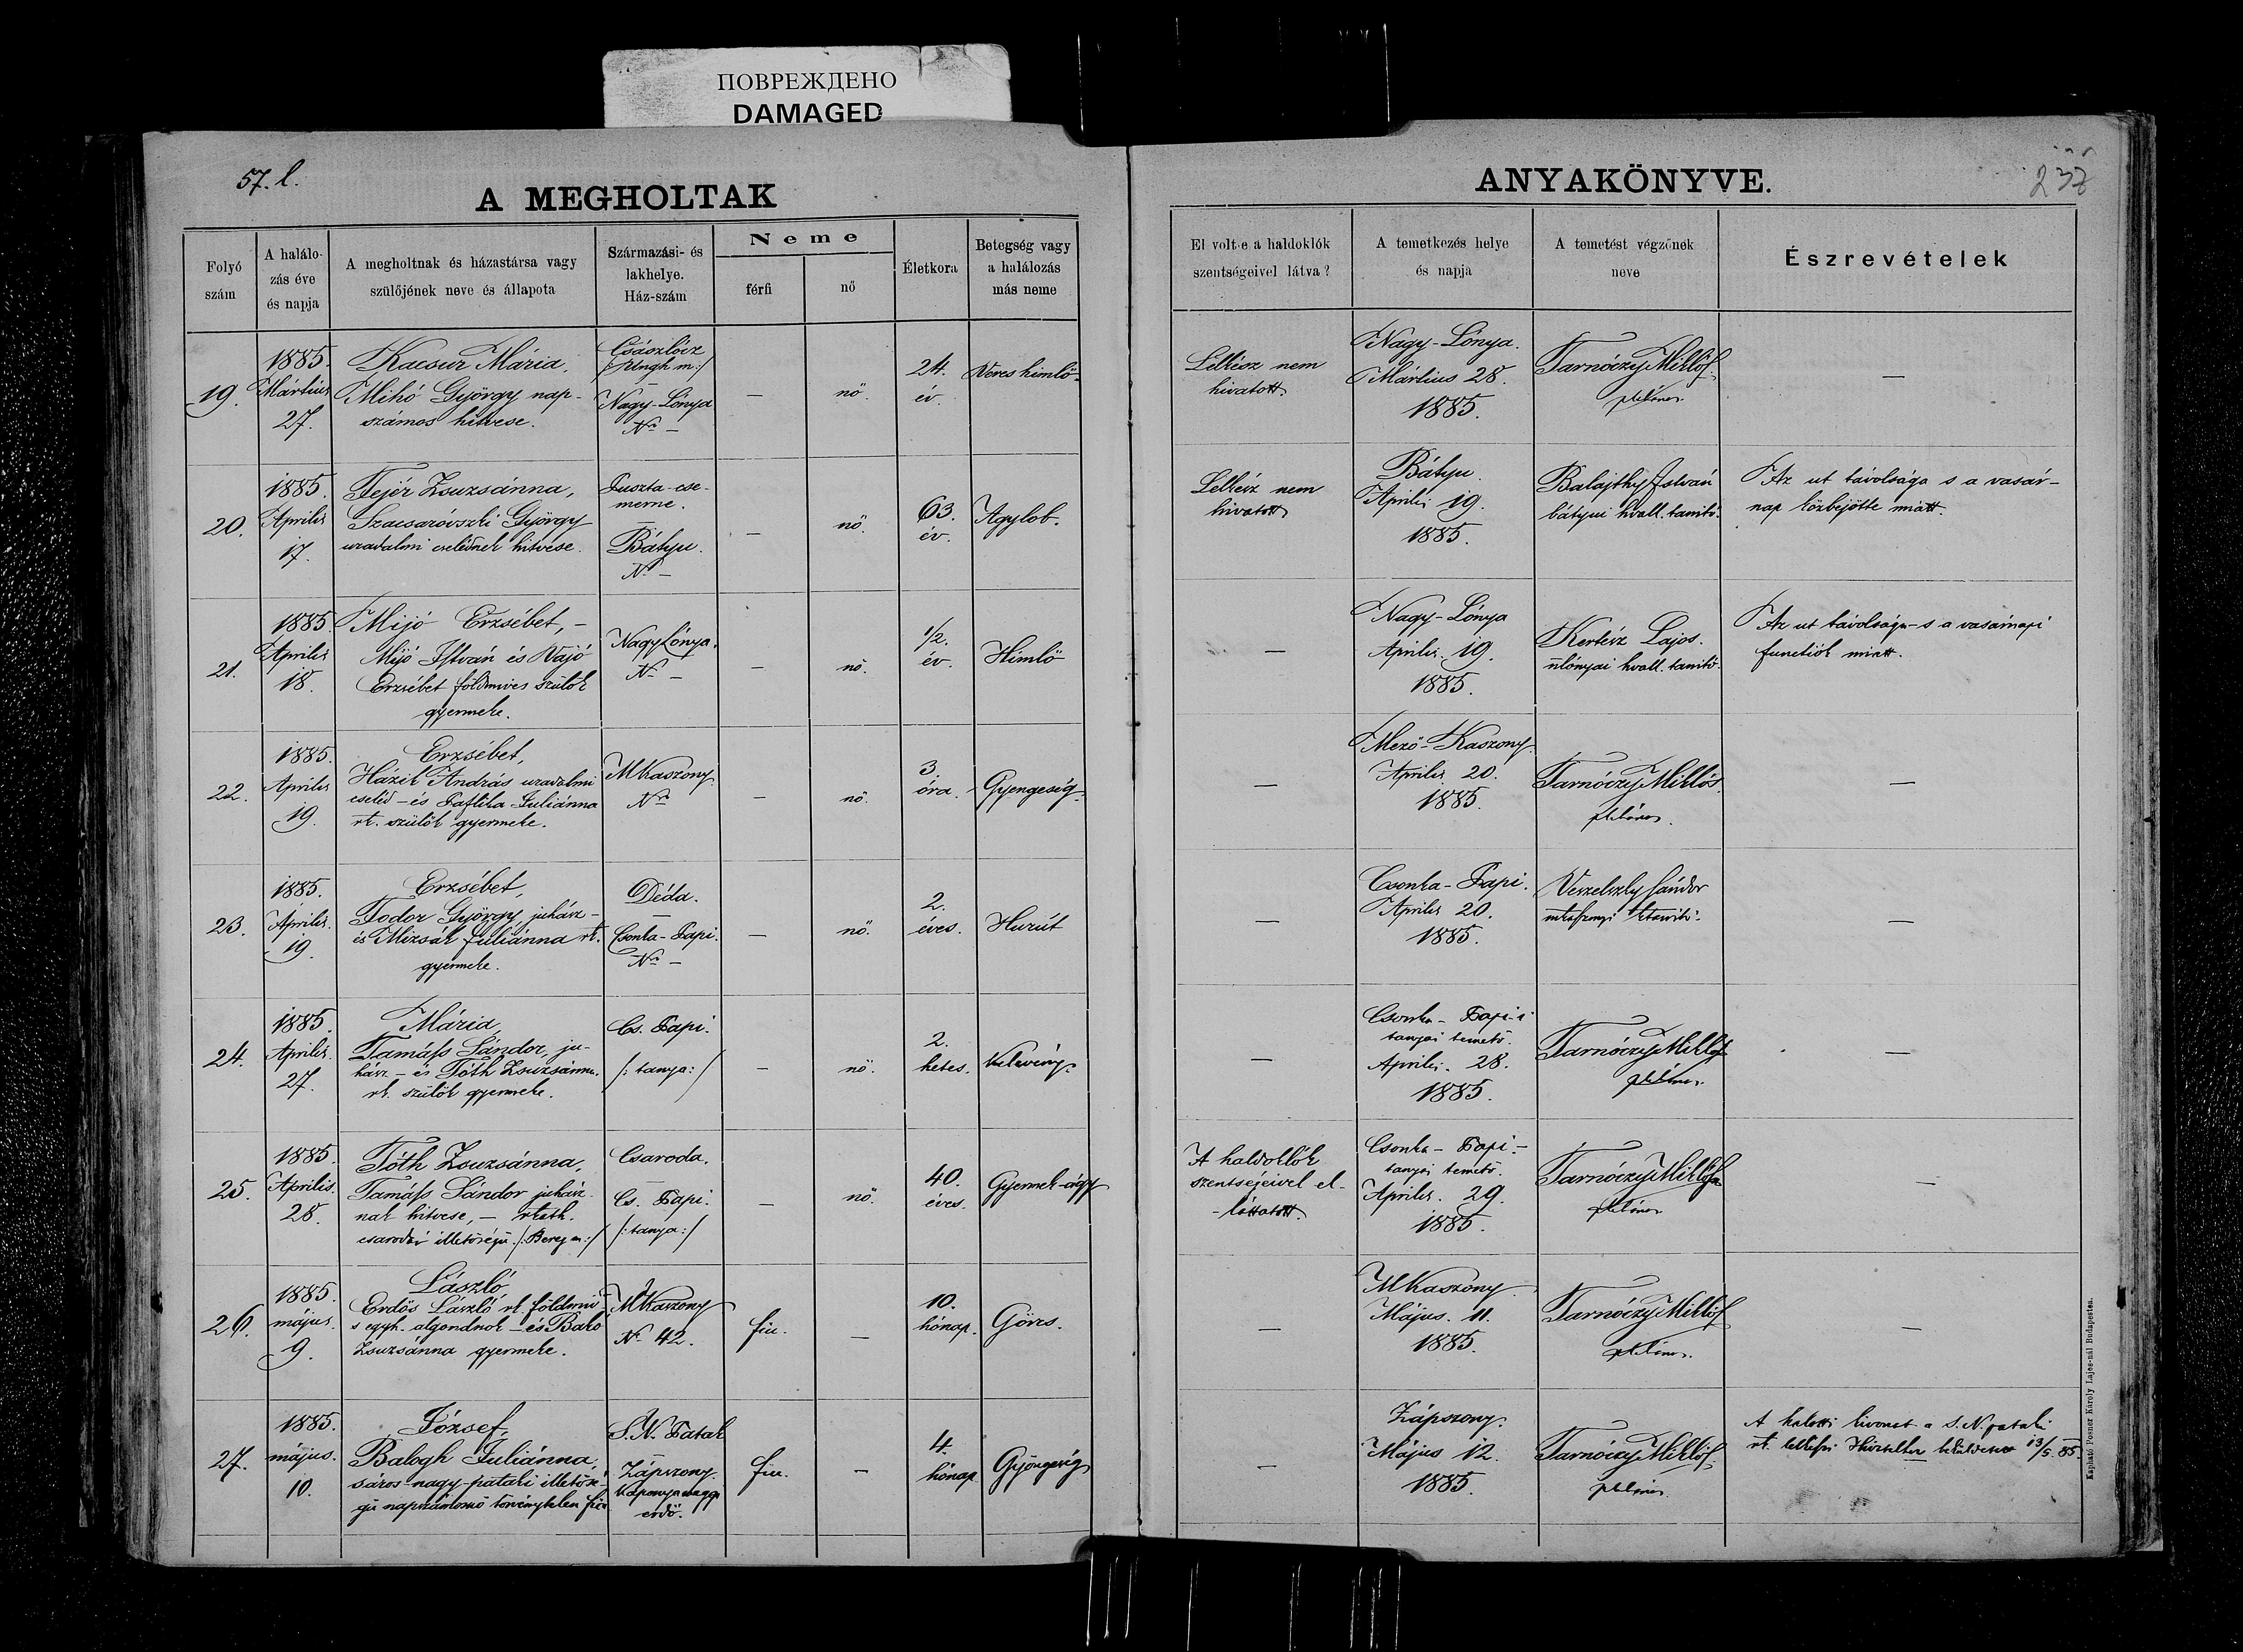 ПОВРЕЖДЕНО
DAMAGED
57. l.
A MEGHOLTAK
ANYAKÖNYVE.
237
Folyó
szám
A halálo-
zás éve
és napja
A megholtnak és házastársa vagy
szülőjének neve és állapota
Származási- és
lakhelye.
Ház-szám
Neme
férfi
nő
Életkora
Betegség vagy
a halálozás
más neme
El volt-e a haldoklók
szentségeivel látva?
A temetkezés helye
és napja
A temetést végzőnek
neve
Észrevételek
19.
1885.
Mártius
27.
Kacsur Mária,
Mihó György nap-
számos hitvese.
Császlócz
Nagy-Lónya
Nº –
–
nő.
24.
év.
Veres himlő.
Lelkész nem
hivatott.
Nagy-Lónya.
Mártius 28.
1885.
Tarnóczy Miklós
plébános.
–
20.
1885.
Április
17.
Fejér Zsuzsánna,
Szacsuróvszki György
uradalmi cselédnek hitvese.
Puszta-cse-
merne.
–
Bátyu.
Nº –
–
nő.
63.
év.
Agylob.
Lelkész nem
hivatott
Bátyu.
Április 19.
1885.
Balajthy István
bátyui hvall. tanító.
Az ut távolsága s a vasár-
nap közbejötte miatt.
21.
1885.
Április
18.
Mijó Erzsébet, –
Mijó István és Vajó
Erzsébet földmives szülők
gyermeke.
Nagy Lónya.
Nº –
–
nő.
1/2.
év.
Himlő
–
Nagy-Lónya
Április. 19.
1885.
Kertész Lajos.
nlónyai hvall. tanító.
Az ut távolsága – s a vasárnapi
functiók miatt.
22.
1885.
Április
19.
Erzsébet,
Házik András uradalmi
cseléd – és Juliánna
rk. szülők gyermeke.
MKaszony.
Nº
–
nő.
3.
óra.
Gyengeség.
–
Mező-Kaszony.
Április 20.
1885.
Tarnóczy Miklós.
plébános.
–
23.
1885.
Április.
19.
Erzsébet,
Fodor György, juhász –
és Mizsák Juliánna rk.
gyermeke.
Déda.
–
Csonka-Papi.
Nº –
–
nő.
2.
éves.
Hurút
–
Csonka-Papi.
Április 20.
1885.
Sándor
–
24.
1885.
Április.
27.
Mária,
Tamáss Sándor, ju-
hász – és Tóth Zsuzsánna
rk. szülők gyermeke.
Cs. Papi.
/: tanya :/
–
nő.
2.
hetes.
Kelevény.
–
Csonka-Papi-i
tanyai temető.
Április. 28.
1885.
Tarnóczy Miklós
plébános.
–
25.
1885.
Április.
28.
Tóth Zsuzsánna,
Tamáss Sándor juhász-
nak hitvese, –
csarodai illetőségü. /: Bereg m :/
Csaroda.
–
Cs. Papi.
/: tanya :/
–
nő.
40.
éves.
Gyermek-ágy
A haldoklók
szentségeivel el-
láttatott.
Csonka-Papi-
tanyai temető.
Április. 29.
1885.
Tarnóczy Miklós
plébános
–
26.
1885.
május.
9.
László,
Erdős László rk. földmű-
s egyh. algondnok – és Bakó
Zsuzsánna gyermeke.
MKaszony
Nº 42.
fiu.
–
10.
hónap.
Görcs.
–
MKaszony.
Május. 11.
1885.
Tarnóczy Miklós
plébános.
–
27.
1885.
május.
10.
József,
Balogh Juliánna,
sáros-nagy-pataki illetősé-
gü napszámosnő törvénytelen fia
S. N. Patak
–
Zápszony.
erdő.
fiu.
–
4.
hónap
Gyöngeség
–
Zápszony.
Május 12.
1885.
Tarnóczy Miklós.
plébános.
A halotti kivonat a S. N. pataki
rk. 13/5. 85.
Kapható Posner Károly Lajos-nál Budapesten.